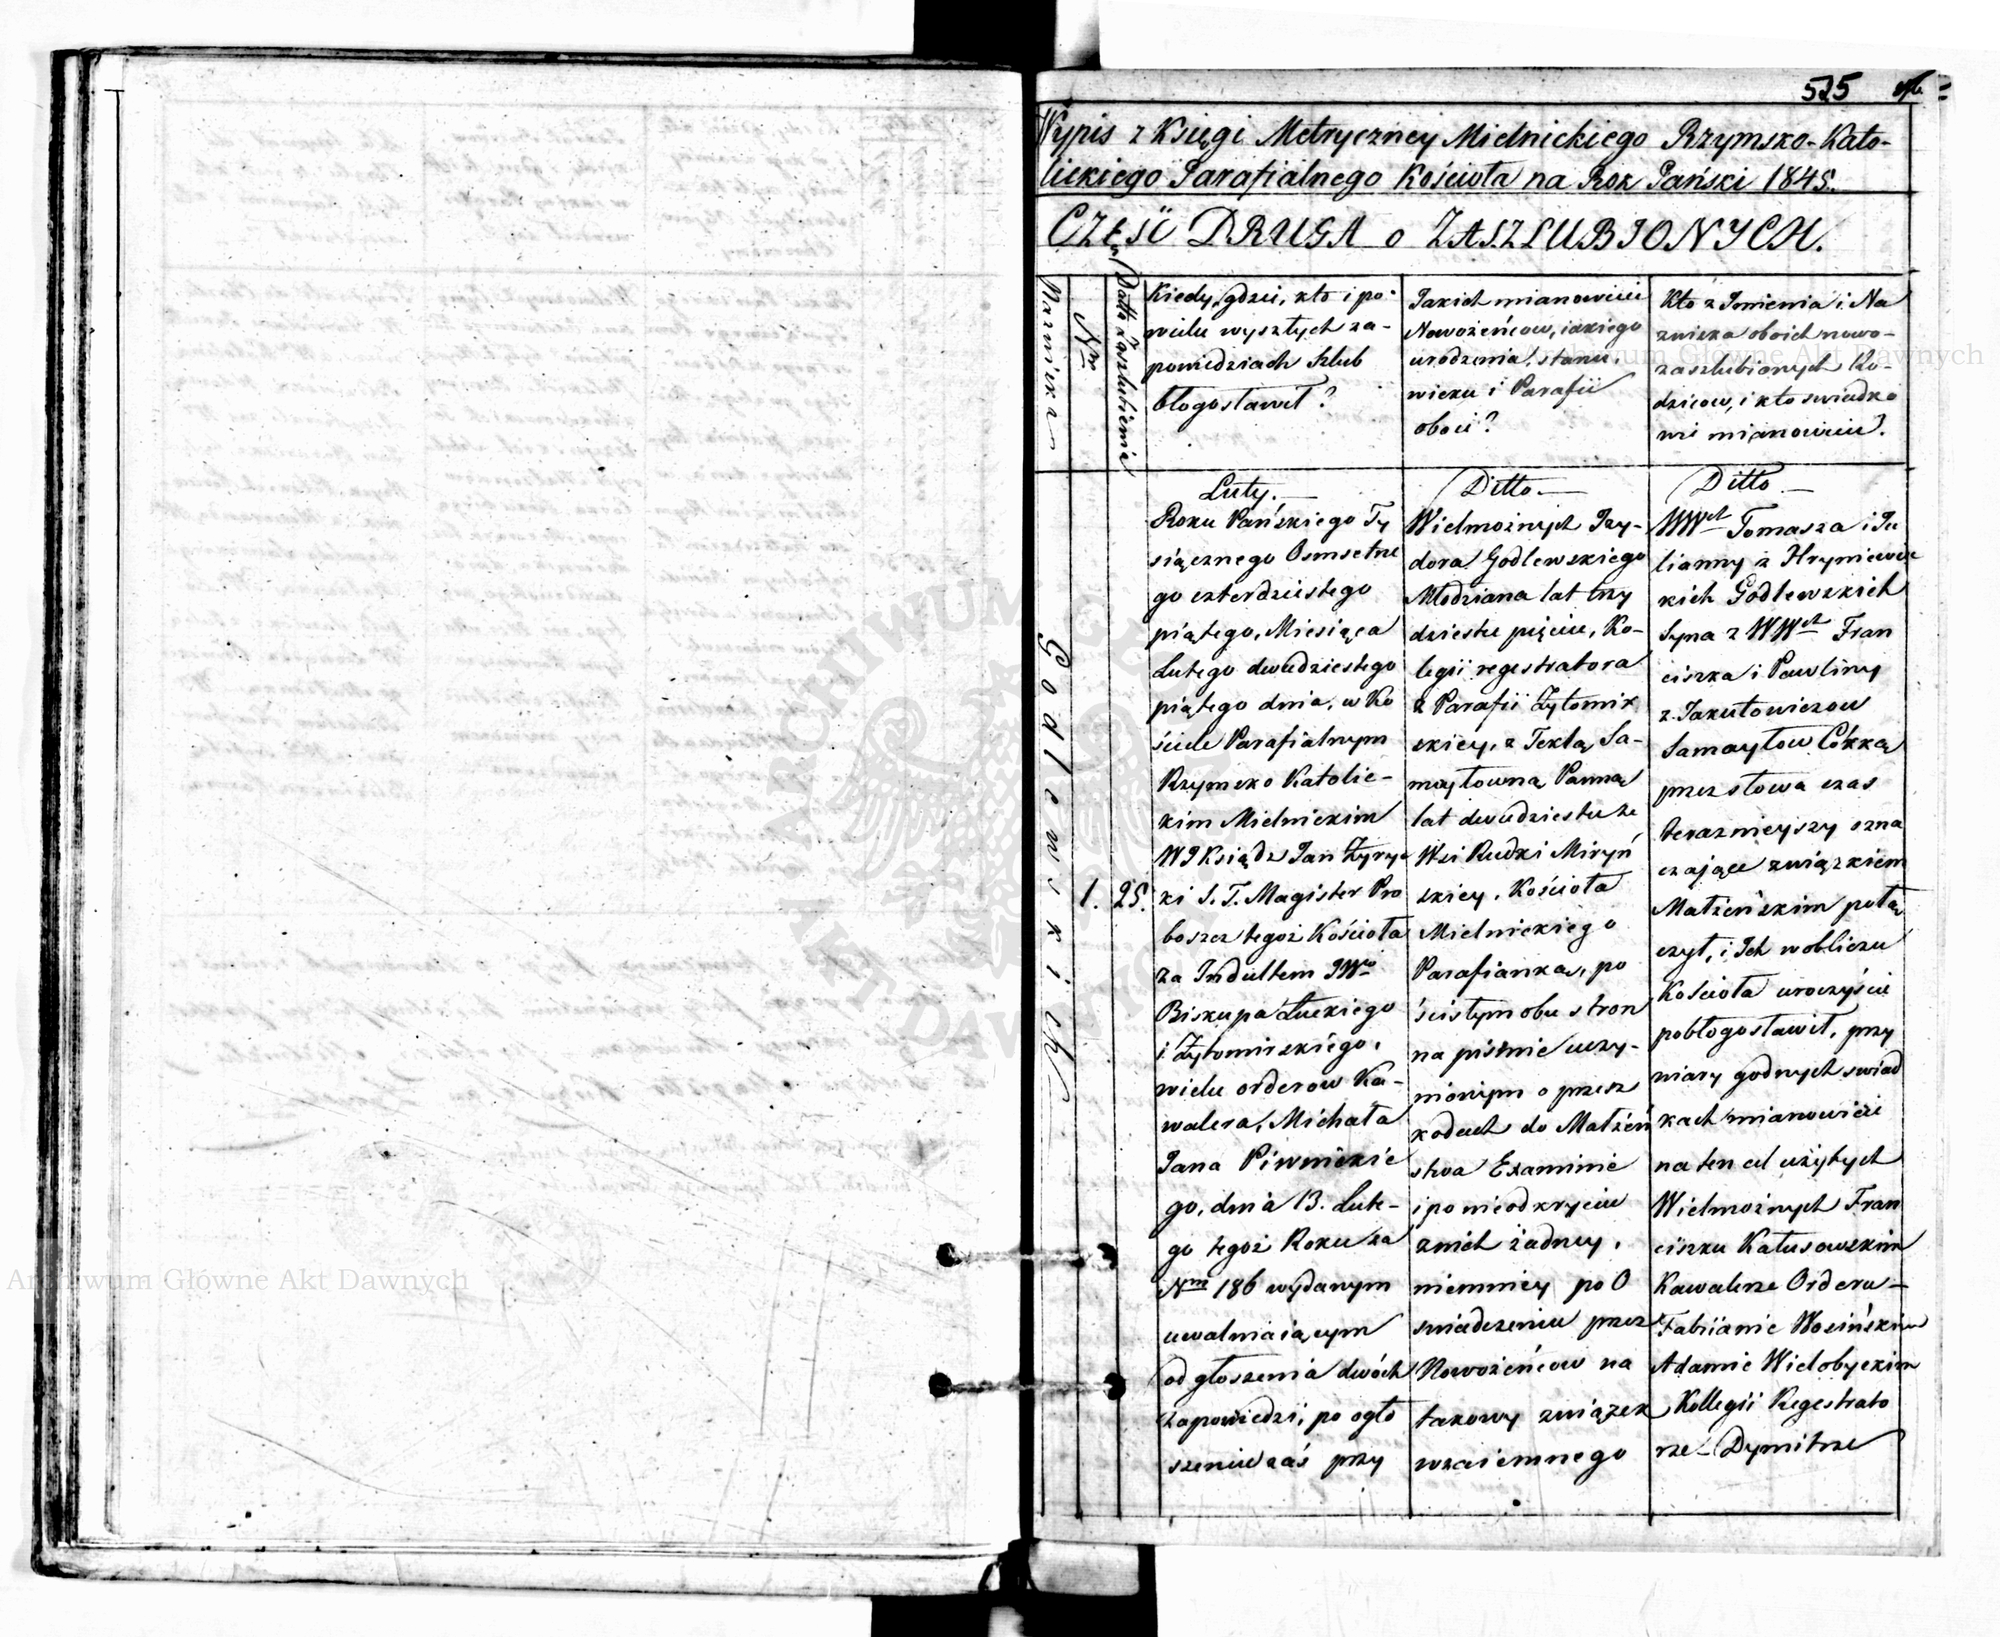 525
Wypis z Księgi Metryczney Mielnickiego Rzymsko-Kato-
lickiego Parafialnego Kościoła na Rok Pański 1845.
CZĘŚĆ DRUGA o ZASZLUBIONYCH.
Nazwiska
Nm
Data Zaszlubienia
Kiedy, gdzie, kto i po
wielu wyszłych za-
powiedziach szlub
błogosławił?
Jakich mianowicie
Nowożeńcow, iakiego
urodzenia, stanu,
wieku i Parafii
oboie?
Kto z Imienia i Na
zwiska oboich nowo-
zaszlubionych Ro-
dzicow, i kto swiadko
wie mianowicie?
Godlewskich
1.
25.
Luty.
Roku Pańskiego Ty
siącznego Osmsetne
go czterdziestego
piątego, Miesiąca
Lutego dwudziestego
piątego dnia, w Ko
ściele Parafialnym
Rzymsko Katolic-
kim Mielnickim
WJ Ksiądz Jan Żyryc
ki S. T. Magister Pro
boszcz tegoż Kościoła
za Indultem JWo
Biskupa Łuckiego
i Żytomirskiego,
wielu orderow Ka-
walera, Michała
Jana Piwnickie
go, dnia 13. Lute-
go tegoż Roku za
Nm 186 wydanym
uwalniaiącym
od głoszenia dwóch
zapowiedzi, po ogło
szeniu zaś przy
Ditto
Wielmożnych Izy-
dora Godlewskiego
Młodziana lat trzy
dziestu pięciu, Ko-
legii registratora
z Parafii Żytomir
skiey, z Teklą Sa-
maytowną Panną
lat dwudziestu ze
Wsi Rudki Miryń
skiey, Kościoła
Mielnickiego
Parafianką, po
ścisłym obu stron
na piśmie uczy-
nionym o przesz
kodach do Małżeń
stwa Examinie
i po nieodkryciu
znich żadney,
niemniey po O
swiadczeniu przez
Nowożeńcow na
takowy związek
wzaiemnego
Ditto
WWch Tomasza i Ju
lianny z Hryniewic
kich Godlewskich
Syna z WWch Fran
ciszka i Pawliny
z Jakutowiczow
Samaytow Córką
przez słowa czas
teraznieyszy ozna
czaiące związkiem
Małżeńskim połą
czył, i Ich wobliczu
Kościoła uroczyście
pobłogosławił, przy
wiary godnych swiad
kach mianowicie
na ten cel użytych
Wielmożnych Fran
ciszku Kałusowskim
Kawalerze Orderu
Fabiianie Wosińskim
Adamie Wielobyckim
Kollegii Regestrato
rze Dymitrze
Archiwum Główne Akt Dawnych
Archiwum Główne Akt Dawnych
ARCHIWUM GŁÓWNE AKT DAWNYCH